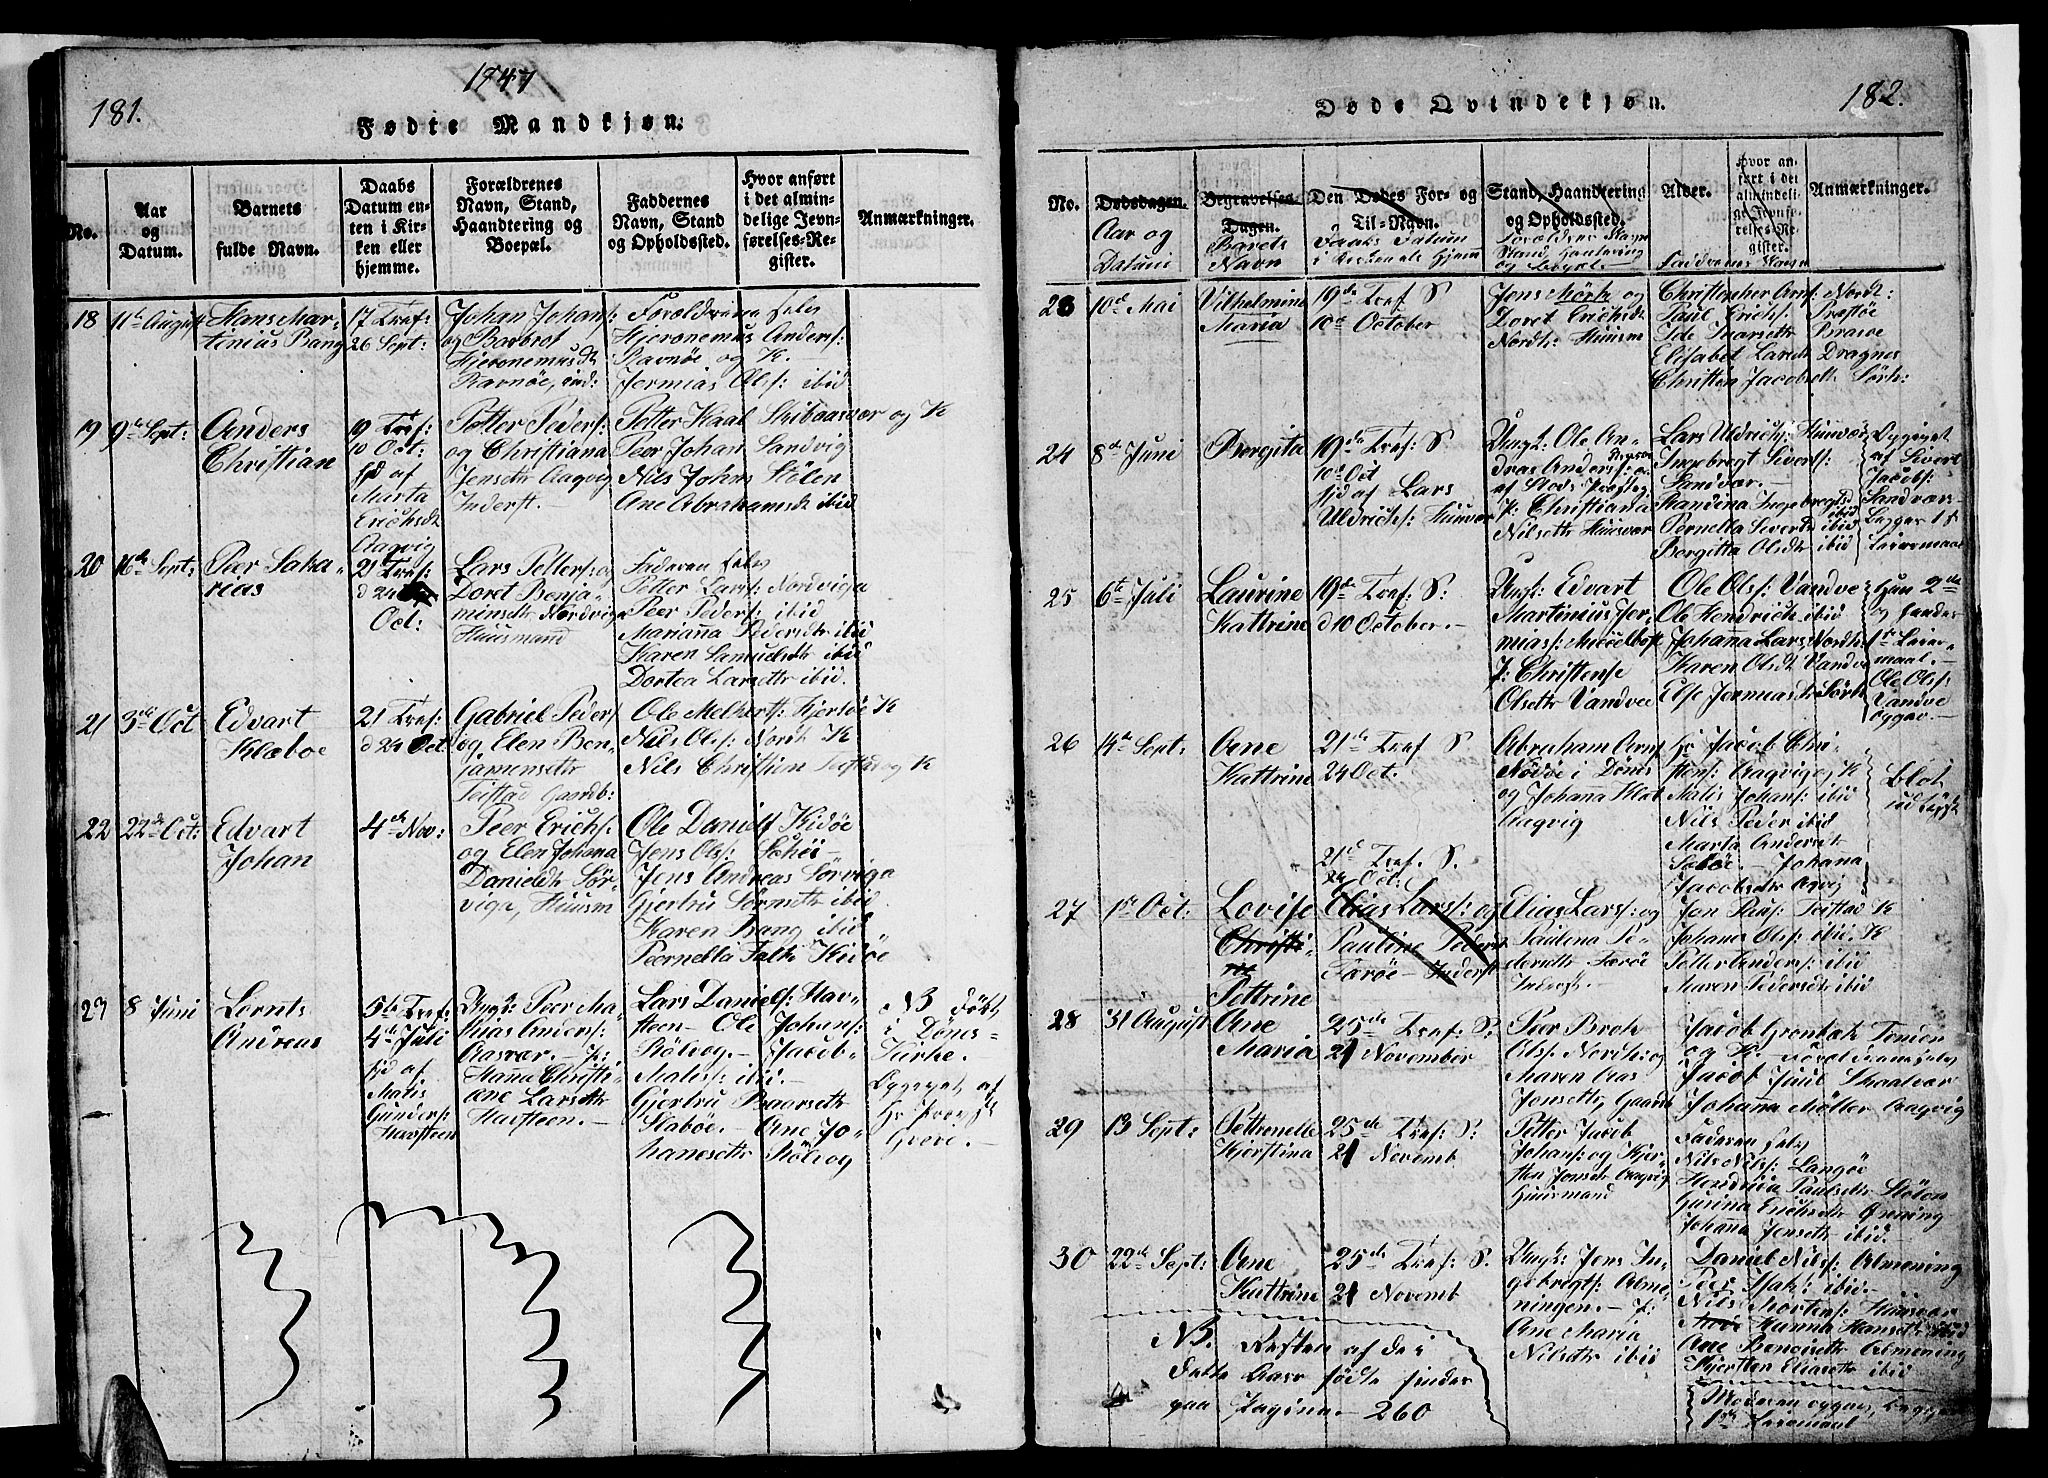 181.
1847
Fødte Mandkjøn.
No.
Aar og Datum.
Barnets fulde Navn.
Daabs Datum enten i Kirken eller hjemme.
Forældrenes Navn, Stand, Haandtering og Boepæl.
Faddernes Navn, Stand og Opholdssted.
Hvor anført i det almindelige Jevnførelses-Register.
Anmærkninger.
18
11te August
Hans Mar-
tinius Bang
17 Traf:
26 Sept:
Johan Johans:
og Barbrot
Hjeronemusdt
Ravnøe, ind:
Forældrene selv
Hjeronemus Anders:
Ravnøe og K.
Jermias Ols: ibid
19
9de Sept:
Anders
Christian
19 Traf:
10 Oct:
hjd af
Marta
Erichsdt
Aagvig
Petter Peders:
og Christiana
Jensdtr Aagvig
Inderst.
Petter Kaal Skibaasvær og K
Peer Johan Sandvig
Nils Johns Stølen
Ane Abrahamsdt ibid
20
16de Sept:
Peer Saka-
rias
21 Traf:
d 24
Oct:
Lars Petters: og
Doret Benja-
minsdtr Nordvig
Huusmand
Faderen selv
Petter Lars: Nordviga
Peer Peders: ibid
Marianna Pedersdtr ibid
Karen Samuelsdtr ibid
Dortea Larsdtr ibid.
21
3de Oct
Edvart
Klæboe
21 Traf:
d 24 Oct
Gabriel Peders
og Elen Ben-
jamensdtr
Teistad Gaardb:
Ole Melkerts: Kjersøe K
Nils Ols: Nordt K
Nils Christian Teistad og K
22
22de Oct:
Edvart
Johan
4de Nov:
Peer Erichs:
og Elen Johana
Danieldtr Sør-
viga, Huusm
Ole Daniels Kidøe
Jens Ols: Sckei
Jens Andreas Sørviga
Gjertru Sørensdtr ibid
Karen Bang ibid
Peernella Falk Kidøe
23
8 Juni
Lornts
Andreas
5te Traf:
4de Juli
hjd af
Matis
Gunders:
Havsteen
Ungk: Peer Ma-
thias Anders:
Aasvær. – P:
Hanna Christi-
ane Larsdtr
Havsteen. –
Lars Daniels: Hav-
steen – Ole Johans:
Stølvog. – Jacob
Matis: ibid. –
Gjertru Baarsdtr
Slabøe. – Ane Jo-
hanesdtr Stølvog
NB Døbt
i Dønes-
Kirke. –
Opgivet af
Hr Provst
Gveré. –
182.
Døde Qvindekjøn.
No.
Dødsdagen.
Aar og
Datum
Begravelses-Dagen.
Barnets
Navn
Den Dødes For- og Til-Navn.
Daabs Datum
i Kirken el: Hjem
Stand, Haandtering og Opholdssted.
Forældrenes Navn
Stand Hantering
og Boepæl
Alder.
Faddrenes Navn
Hvor anført i det almindelige Jevnførelses-Register.
Anmærkninger.
23
10de Mai
Vilhelmine
Maria
19de Traf S
10de October
Jens Mørk og
Doret Erichsdt
Nordt: Huusm
Christopher Arns: Nordt:
Paul Erichs: Præstøe
Ide Marisdtr Brasøe
Elisabet Larsdtr Dragnes
Christin Jacobsdtr Sørh:
24
8de Juni
Bergita
19de Traf: S
10de Oct
hjd af Lars
Uldrichs: Huusvær
Ungk: Ole An-
dreas Anders:
P: Christiana
Nilsdtr Huusvær
Lars Uldrichs: Huusvær
Ingebregt Sivers:
Sandvær. –
Randina Ingebregtsd ibid
Pernella Siverts ibid
Bergitta Olsdtr ibid
Opgivet
af Sivert
Jacobs:
Sandvær
Begges 1ste
Leiermaal
25
6te Juli
Laurine
Kattrine
19de Traf S.
d 10 October. –
Ungk: Edvart
Martinius Jer-
mias:
P: Christense
Olsdtr Vandvee
Ole Ols: Vandve
Ole Hendrichs ibid
Johanna Lars Nordt:
Karen Olsdt Vandve
Else Jermiasdtr Sørh:
Hun 2de
og fandes
1ste Leier-
maal. –
Ole Ols:
Vandve
opgav. –
26
14de Sept:
Ane
Kattrine
21de Traf S.
24 Oct.
Abraham Arns
Nødøe i Dønes
og Johana Klat
Aagvig
Hr Jacob Chri-
stens: Aagvig og K
Matis Johans: ibid
Nils Peder ibid
Marta Andersdt
Sabøe. – Johana
Jacobsdtr Aagvig
27
1ste Oct:
Lovise
Christi-
ne
Pettrine
21de Traf. S.
24 Oct:
Elias Lars: og
Pauline Peders
Færøe – Inderst
Elias Lars: og
Paulena Pe-
dersdtr Færøe
Inderst
Jon Pauls: Teistad K
Johanes Ols: ibid. K
Petter Anders: ibid
Maren Pedersdt ibid
28
31 August
Ane
Maria
25de Traf: S.
21 November
Peer Broch
Ols: Nordt: og
Maren Aas
Jensdtr, Gaardb
Jacob Grønbæk Tenien
og K. –
Jacob Juul Skaalvær
Johanna Møller Aagvig
29
13 Sept:
Pettronelle
Kjerstina
25de Traf: S:
21 Novemb
Petter Jacob
Johans: og Kjer-
sten Jensdt Aagvig
Huusmand
Faderen selv
Nils Nils: Langøe
Hendrica Paulsdtr Stølen
Gurina Erichsdtr Ønning
Johanna Jensdtr ibid. –
30
22de Sept:
Ane
Kattrine
25de Traf: S.
21 Novemb
Ungk: Jens In-
gebregts: Alme-
ningen. – P:
Ane Maria
Nilsdtr ibid
Daniel Nils: Almening
Peer Isak: ibid.
Nils Mortens: Huusvær
Hanna Hansdtr ibid
Ane Bencisdtr Almening
Kjersten Eliasdtr ibid
Moderen opgav, begges
1ste Leiermaal
NB. Resten af de i
dette Aar fødte findes
paa Pagina. – 260